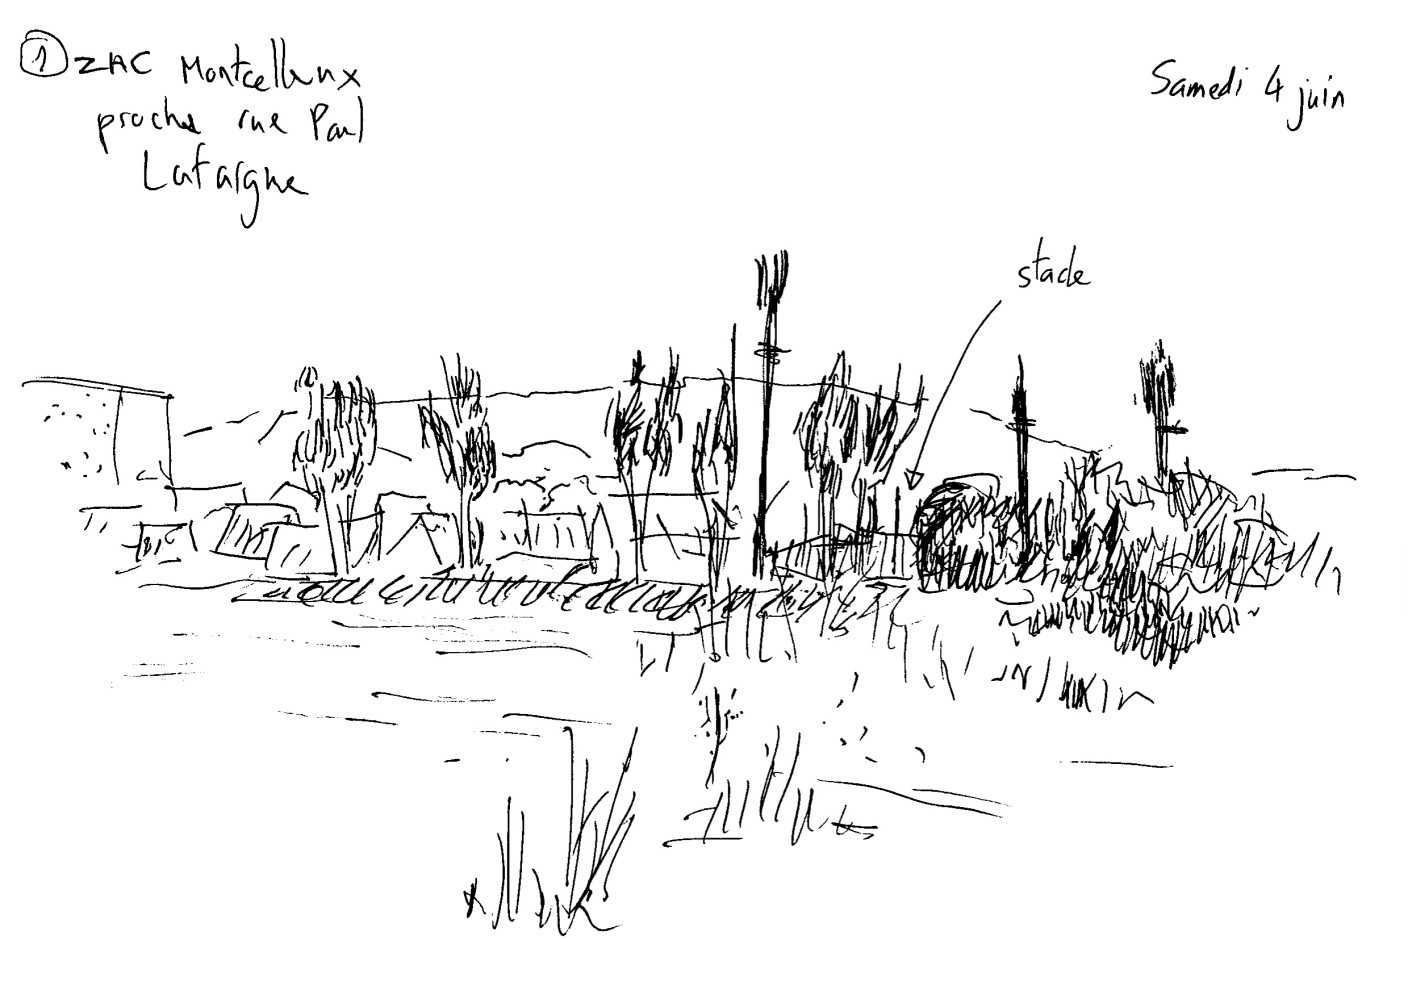 1 ZAC Montcelleux
proche rue Paul
Lafargue
Samedi 4 juin
stade